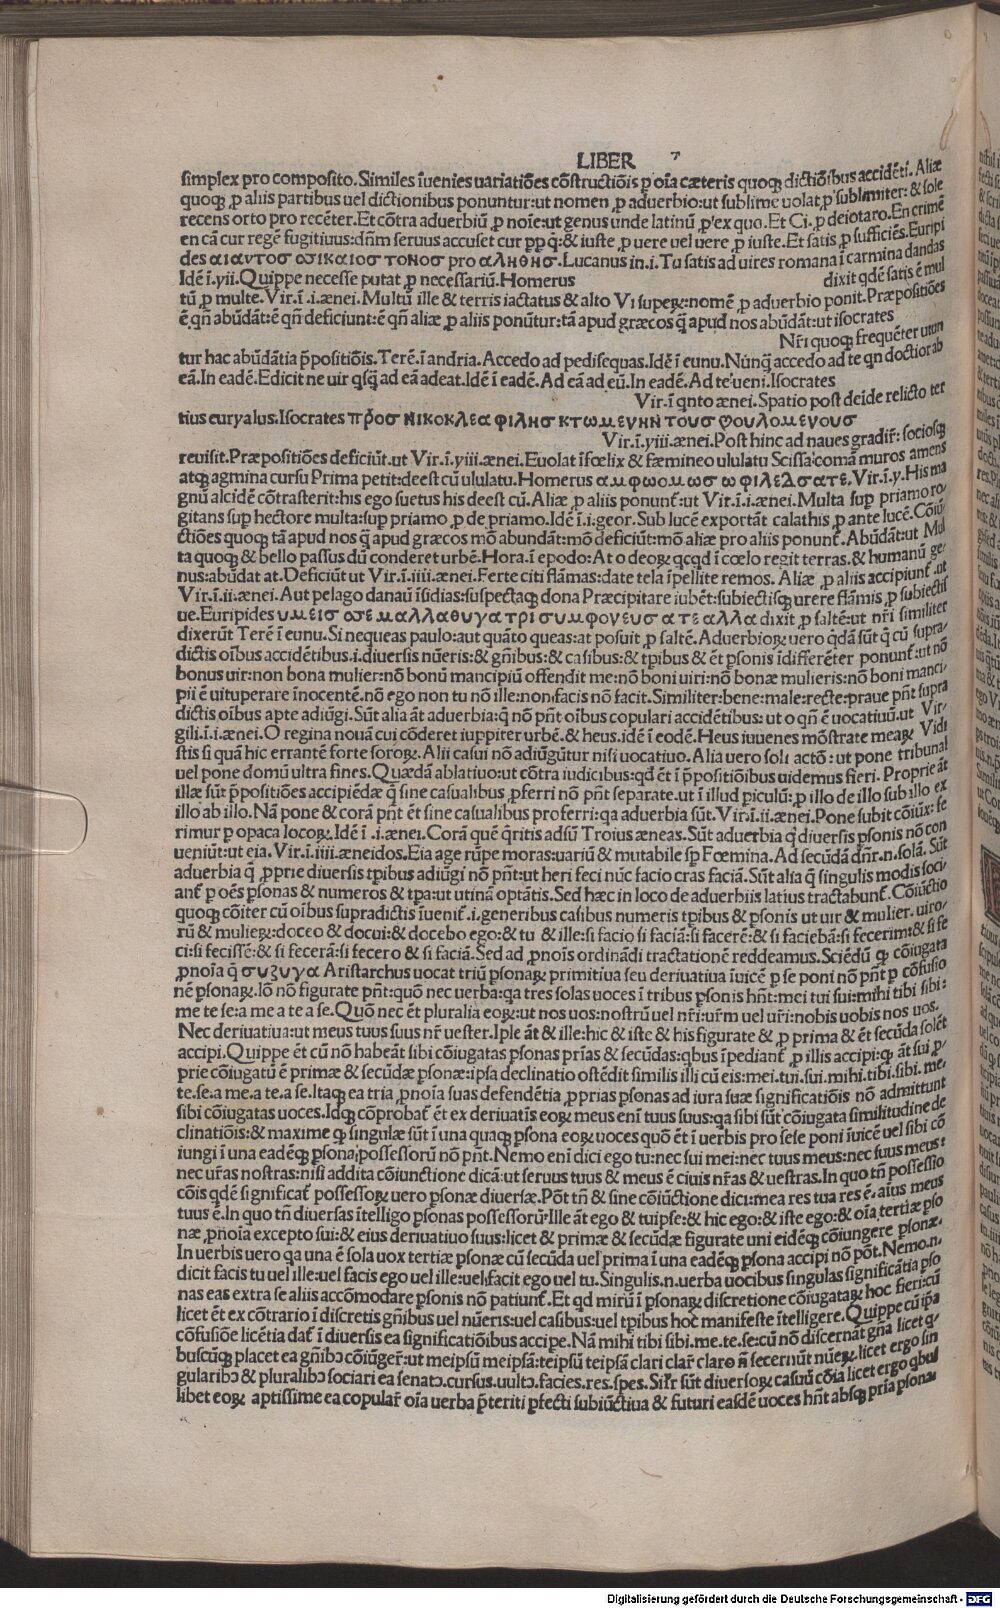 LIBER
simplex pro composito. Similes īuenies uariatiōes cōstructiōis ꝑ oīa cæteris quoqꝫ dictiōibus accidēti. Aliæ
quoqꝫ ꝓ aliis partibus uel dictionibus ponuntur: ut nomen ꝓ aduerbio: ut sublime uolat, ꝓ sublimiter: & sole
recens orto pro recēter. Et cōtra aduerbiū ꝓ noīe: ut genus unde latinū ꝓ ex quo. Et Ci. ꝓ deiotaro. En crimē
en cā cur regē fugitiuus: dn̄m seruus accuset cur ꝓ ꝓ q̄: & iuste ꝓ uere uel uere ꝓ iuste. Et satis ꝓ sufficiēs. Euripi
des αιαντοσ οσικαιοσ τονοσ pro αληθησ. Lucanus in. i. Tu satis ad uires romana ī carmina dandas
Idē ī. yii. Quippe necesse putat ꝓ necessariū. Homerus dixit qdē satis ē mul
tū ꝓ multe. Vir. ī. i. ænei. Multū ille & terris iactatus & alto Vi superꝝ: nomē ꝓ aduerbio ponit. Præpositiōes
ē, qn̄ abūdāt: ē qn̄ deficiunt: ē qn̄ aliæ ꝓ aliis ponūtur: tā apud græcos q̄ apud nos abūdāt: ut isocrates
Nr̄i quoqꝫ frequēter utun
tur hac abūdātia p̄positiōis. Terē. ī andria. Accedo ad pedisequas. Idē ī eunu. Nūnq̄ accedo ad te qn doctior ab
eā. In eadē. Edicit ne uir qsq̄ ad eā adeat. Idē ī eadē. Ad eā ad eū. In eadē. Ad te ueni. Isocrates
Vir. ī qnto ænei. Spatio post deide relicto ter
tius euryalus. Isocrates προσ νικοκλεα φιλησ κτωμενην τουσ φουλομενουσ
Vir. ī. yiii. ænei. Post hinc ad naues gradit̄: sociosqꝫ
reuisit. Præpositiōes deficiūt. ut Vir. ī. yiii. ænei. Euolat īfœlix & fæmineo ululatu Scissa comā muros amens
atqꝫ agmina cursu Prima petit: deest cū ululatu. Homerus αμφωομωσ ω φιλεδσατε. Vir. ī. y. His ma
gnū alcidē cōtrasterit: his ego suetus his deest cū. Aliæ ꝓ aliis ponunt̄: ut Vir. ī. i. ænei. Multa suꝑ priamo ro/
gitans suꝑ hectore multa: suꝑ priamo ꝓ de priamo. Idē ī. i. geor. Sub lucē exportāt calathis ꝓ ante lucē. Cōiū
ctiōes quoqꝫ tā apud nos q̄ apud græcos mō abundāt: mō deficiūt: mō aliæ pro aliis ponunt̄. Abūdāt: ut Mul
ta quoqꝫ & bello passus dū conderet urbē. Hora. ī epodo: At o deoꝝ qcqd ī cœlo regit terras. & humanū ge/
nus: abūdat at. Deficiūt ut Vir. ī. iiii. ænei. Ferte citi flāmas: date tela īpellite remos. Aliæ ꝓ aliis accipiunt̄. ut
Vir. ī. ii. ænei. Aut pelago danaū īsidias: suspectaqꝫ dona Præcipitare iubēt: subiectisqꝫ urere flāmis ꝓ subiectis
ue. Euripides υμεισ οσε μαλλαθυγατρι συμφονευσ ατε αλλα dixit ꝓ saltē: ut nr̄i similiter
dixerūt Terē ī eunu. Si nequeas paulo: aut quāto queas: at posuit ꝓ saltē. Aduerbioꝝ uero qdā sūt q̄ cū supra/
dictis oībus accidētibus. i. diuersis nūeris: & gn̄ibus: & casibus: & tꝑibus & ēt ꝑsonis īdifferēter ponunt̄: ut nō
bonus uir: non bona mulier: nō bonū mancipiū offendit me: nō boni uiri: nō bonæ mulieris: nō boni manci/
pii ē uituperare īnocentē. nō ego non tu nō ille: non facis nō facit. Similiter: bene: male: recte: praue pn̄t supra
dictis oībus apte adiūgi. Sūt alia āt aduerbia: q̄ nō pn̄t oībus copulari accidētibus: ut o qn̄ ē uocatiuū. ut Vir/
gili. ī. i. ænei. O regina nouā cui cōderet iuppiter urbē. & heus. idē ī eodē. Heus iuuenes mōstrate meaꝝ Vidi
stis si quā hic errantē forte soroꝝ. Alii casui nō adiūgūtur nisi uocatiuo. Alia uero soli actō: ut pone tribunal
uel pone domū ultra fines. Quædā ablatiuo: ut cōtra iudicibus: qd ēt ī p̄positiōibus uidemus fieri. Proprie āt
illæ sūt p̄positiōes accipiēdæ q̄ sine casualibus ꝓferri nō pn̄t separate. ut ī illud piculū: ꝓ illo de illo sub illo ex
illo ab illo. Nā pone & corā pn̄t ēt sine casualibus proferri: qa aduerbia sūt. Vir. ī. ii. ænei. Pone subit cōiūx: fe
rimur ꝑ opaca locoꝝ. Idē ī. i. ænei. Corā quē q̄ritis adsū Troius æneas. Sūt aduerbia q̄ diuersis ꝑsonis nō con
ueniūt: ut eia. Vir. ī. iiii. æneidos. Eia age rūpe moras: uariū & mutabile sꝑ Fœmina. Ad secūdā dn̄r. n. solā. Sūt
aduerbia q̄ ꝓprie diuersis tꝑibus adiūgi nō pn̄t: ut heri feci nūc facio cras faciā. Sūt alia q̄ singulis modis soci/
ant̄ ꝑ oēs ꝑsonas & numeros & tꝑa: ut utinā optātis. Sed hæc in loco de aduerbiis latius tractabunt̄. Cōiūctio
quoqꝫ cōiter cū oībus supradictis īuenit̄. i. generibus casibus numeris tꝑibus & ꝑsonis ut uir & mulier. uiro/
rū & mulieꝝ: doceo & docui: & docebo ego: & tu & ille: si facio si faciā: si facerē: & si faciebā: si fecerim: & si fe
ci: si fecissē: & si fecerā: si fecero & si faciā. Sed ad ꝓnoīs ordinādi tractationē reddeamus. Sciēdū ꝙ cōiugata
ꝓnoīa q̄ συζυγα Aristarchus uocat triū ꝑsonaꝝ primitiua seu deriuatiua īuicē ꝓ se poni nō pn̄t ꝑ cōfusio
nē ꝑsonaꝝ. Iō nō figurate pn̄t: quō nec uerba: qa tres solas uoces ī tribus ꝑsonis hn̄t: mei tui sui: mihi tibi sibi:
me te se: a me a te a se. Quō nec ēt pluralia eoꝝ: ut nos uos: nostrū uel nr̄i: ur̄m uel ur̄i: nobis uobis nos uos.
Nec deriuatiua: ut meus tuus suus nr̄ uester. Ipse āt & ille: hic & iste & his figurate & ꝓ prima & ēt secūda solēt
accipi. Quippe ēt cū nō habeāt sibi cōiugatas ꝑsonas prīas & secūdas: qbus īpediant̄ ꝓ illis accipi: ꝙ āt sui ꝓ/
prie cōiugatū ē primæ & secūdæ ꝑsonæ: ipsa declinatio ostēdit similis illi cū eis: mei. tui. sui. mihi. tibi. sibi. me.
te. se. a me. a te. a se. Itaqꝫ ea tria ꝓnoīa suas defendētia ꝓprias ꝑsonas ad iura suæ significatiōis nō admittunt
sibi cōiugatas uoces. Idqꝫ cōprobat̄ ēt ex deriuatīs eoꝝ meus eni tuus suus: qa sibi sūt cōiugata similitudine de
clinatiōis: & maxime ꝙ singulæ sūt ī una quaqꝫ ꝑsona eoꝝ uoces quō ēt ī uerbis pro sese poni īuicē uel sibi cō
iungi ī una eadēqꝫ ꝑsona possessorū nō pn̄t. Nemo eni dici ego tu: nec sui mei: nec tuus meus: nec suus meus:
nec ur̄as nostras: nisi addita cōiunctione dicā: ut seruus tuus & meus ē ciuis nr̄as & uestras. In quo tn̄ possessio
cōis qdē significat̄ possessoꝝ uero ꝑsonæ diuersæ. Pōt tn̄ & sine cōiūctione dici: mea res tua res ē. aius meus
tuus ē. In quo tn̄ diuersas ītelligo ꝑsonas possessorū Ille āt ego & tuipse: & hic ego: & iste ego: & oīa tertiæ ꝑso
næ ꝓnoīa excepto sui: & eius deriuatiuo suus: licet & primæ & secūdæ figurate uni eidēqꝫ cōiungere ꝑsonæ.
In uerbis uero qa una ē sola uox tertiæ ꝑsonæ cū secūda uel prima ī una eadēqꝫ ꝑsona accipi nō pōt. Nemo. n.
dicit facis tu uel ille: uel facis ego uel ille: uel facit ego uel tu. Singulis. n. uerba uocibus singulas significātia ꝑso
nas eas extra se aliis accōmodare ꝑsonis nō patiunt̄. Et qd mirū ī ꝑsonaꝝ discretione cōiugataꝝ hoc fieri: cū
licet ēt ex cōtrario ī discretis gn̄ibus uel nūeris: uel casibus: uel tꝑibus hoc manifeste ītelligere. Quippe cū ip̄a
cōfusiōe licētia dat̄ ī diuersis ea significatiōibus accipe. Nā mihi tibi sibi. me. te. se: cū nō discernāt gn̄a licet q/
buscūqꝫ placet ea gn̄ibꝰ cōiūgeŕ: ut meipsū meipsā: teipsū teipsā clari claŕ claro n̄ secernūt nūeꝝ. licet ergo sin
gularibꝰ & pluralibꝰ sociari ea senatꝰ. cursus. uultꝰ. facies. res. spes. Silr̄ sūt diuersoꝝ casuū cōia licet ergo qbus
libet eoꝝ aptissime ea copulaŕ oīa uerba p̄teriti ꝑfecti subiūctiua & futuri easdē uoces hn̄t absqꝫ pria ꝑsona
Digitalisierung gefördert durch die Deutsche Forschungsgemeinschaft - DFG